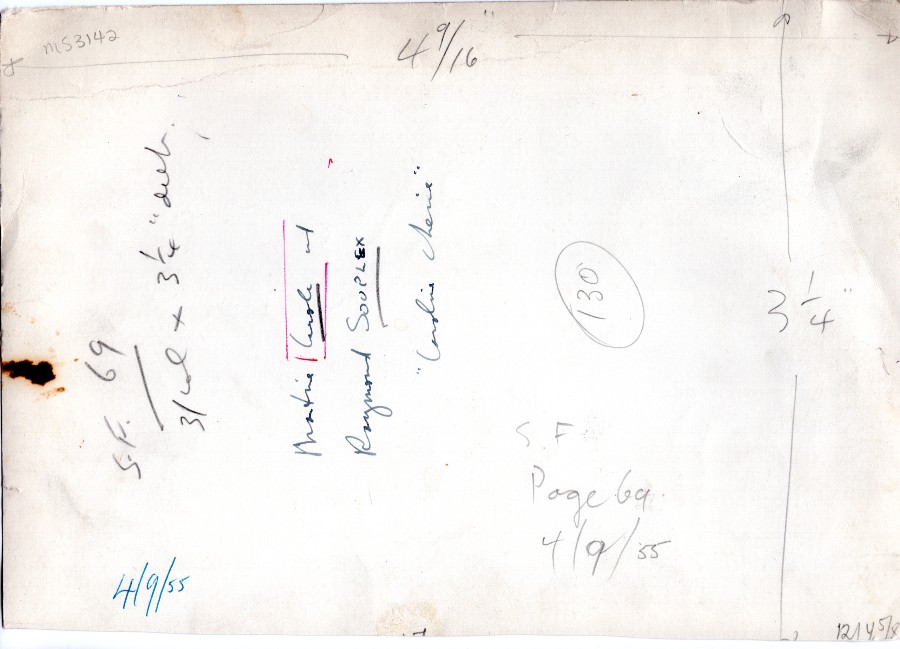 MS3142
4 9/16"
S.F. 69
3/col x 3 1/4" deep.
Martine Carole et
Raymond SOUPLEX
"Caroline Cherie"
130
3 1/4"
S.F.
Page 69.
4/9/55
4/9/55